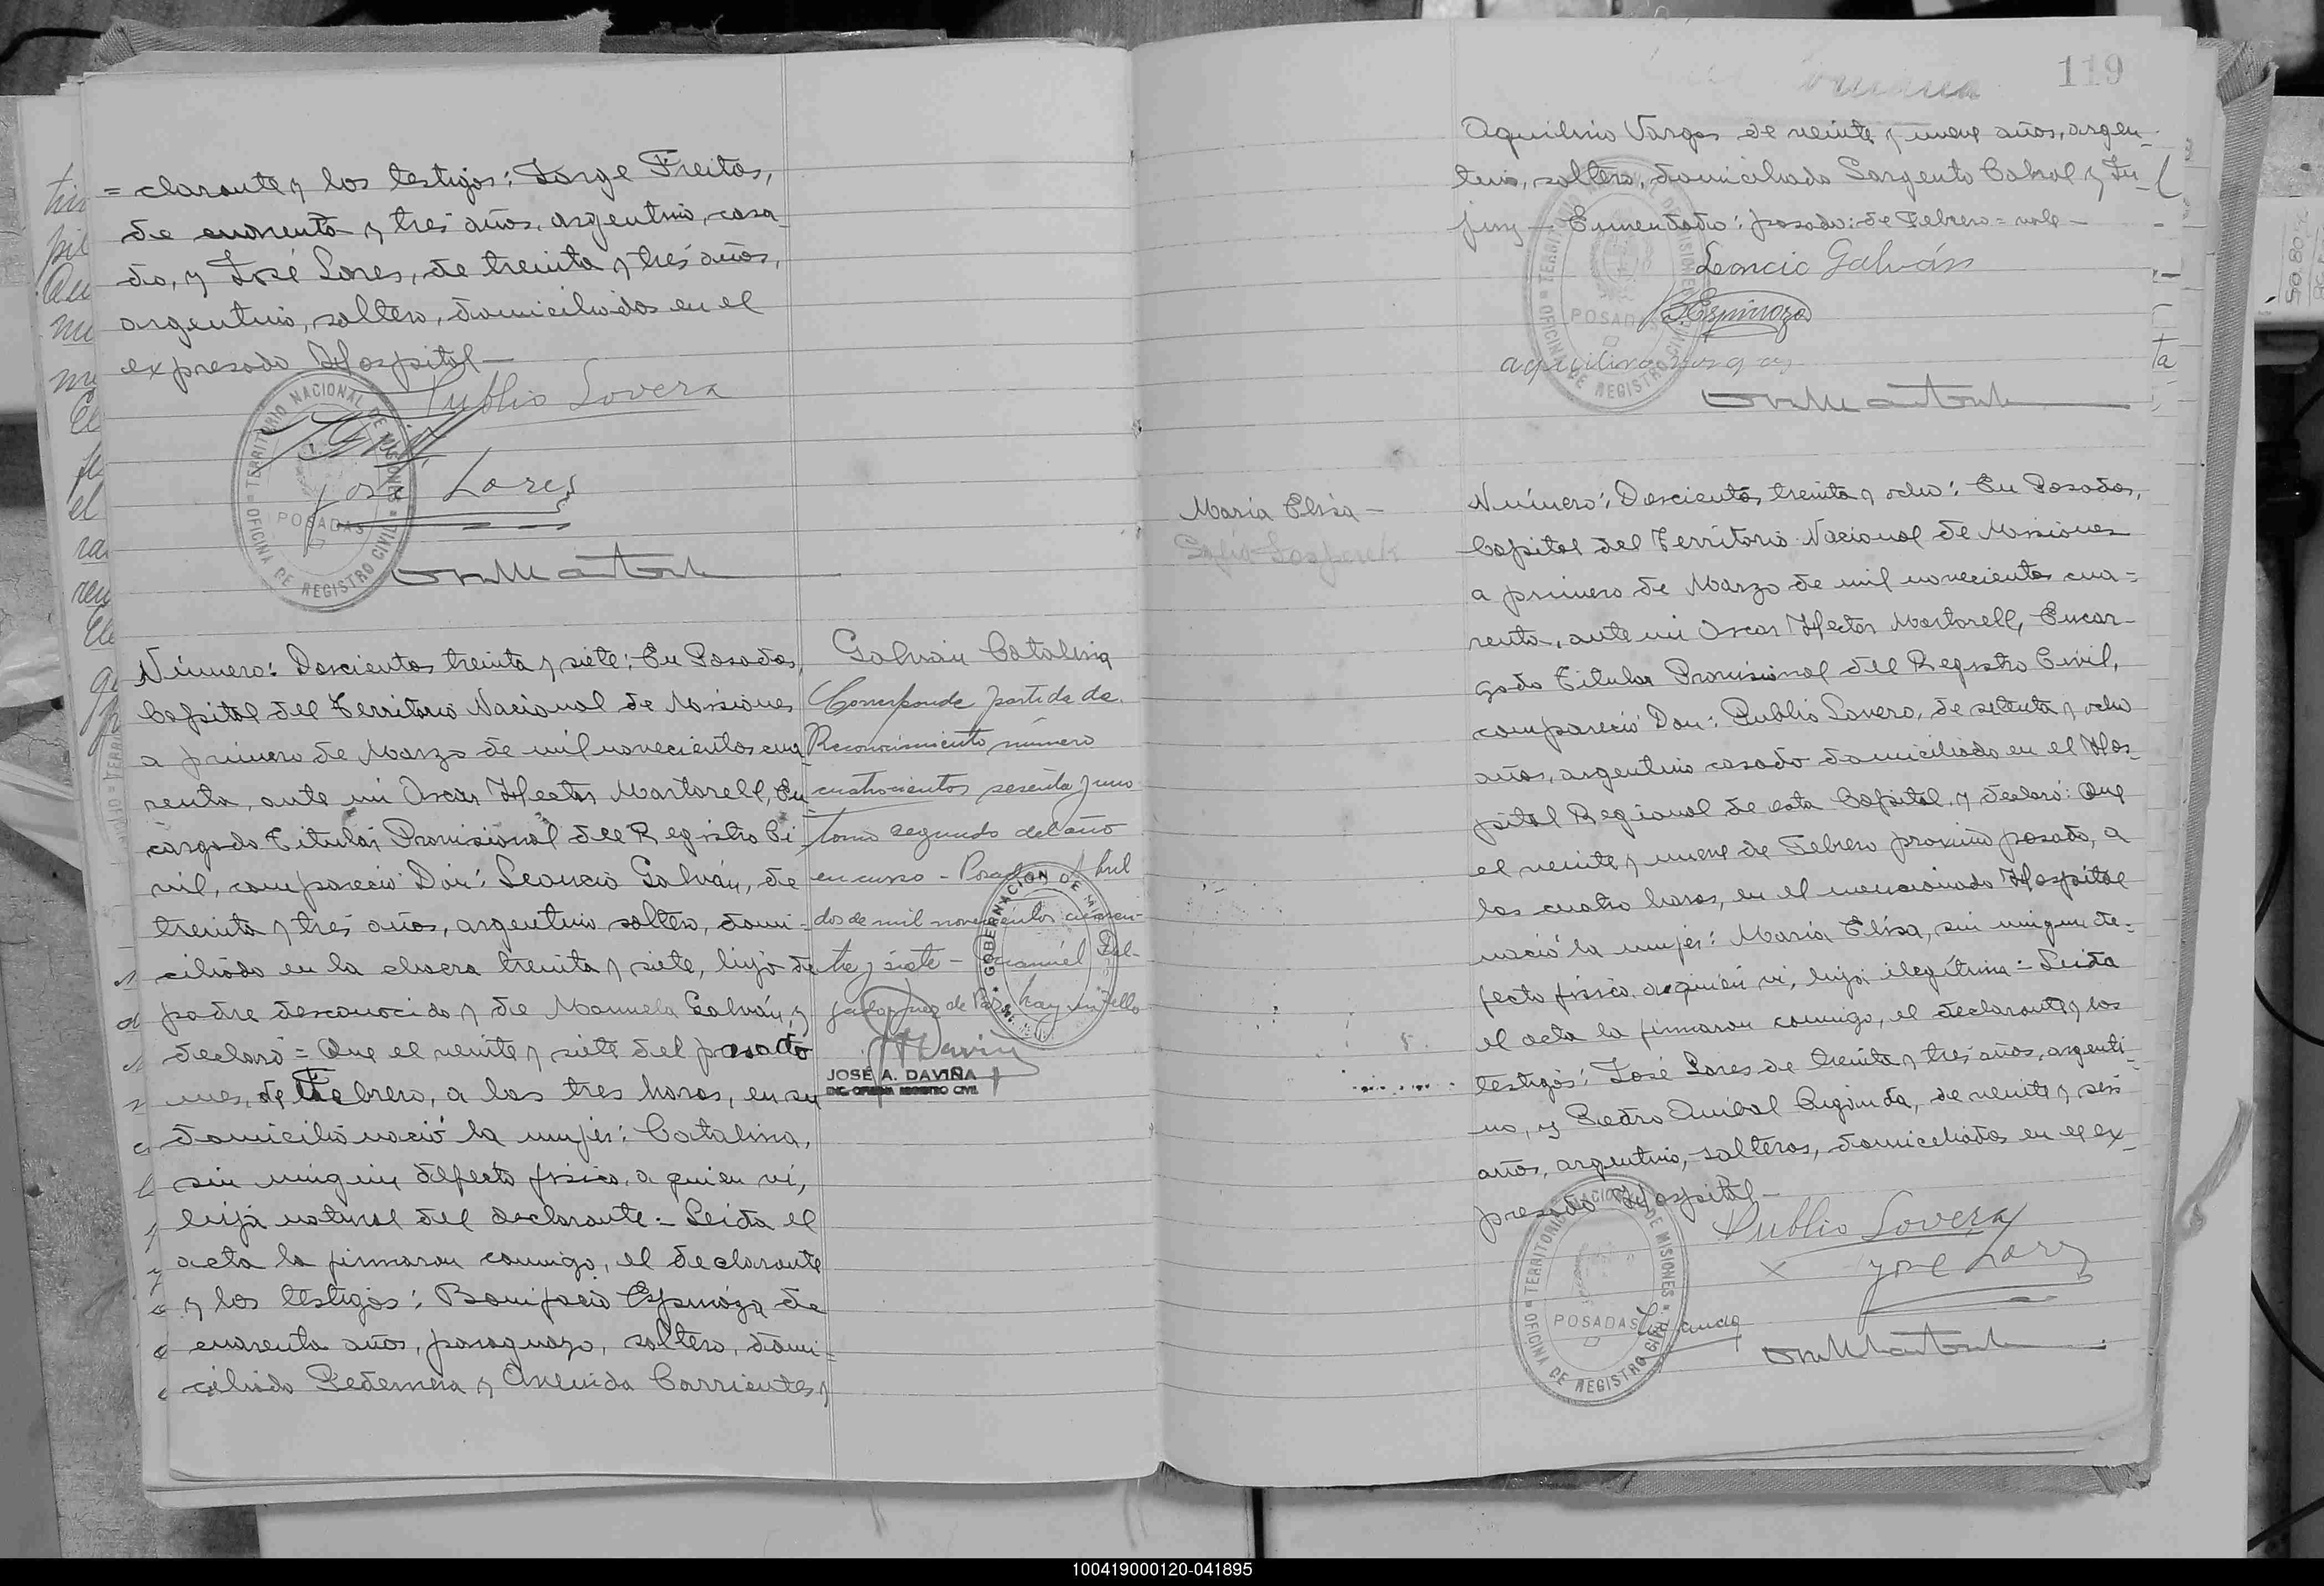 = clarante y los testigos: Jorge Freitas,
de cuarenta y tres años, argentino, casa-
do, y José Lares, de treinta y tres años,
argentino, soltero, domiciliados en el
expresado Hospital—
Publio Lovera
José Lares
TERRITORIO NACIONAL DE MISIONES
OFICINA DE REGISTRO CIVIL
POSADAS
Número: Doscientos treinta y siete: En Posadas,
Capital del Territorio Nacional de Misiones
a primero de Marzo de mil novecientos cua-
renta, ante mi Oscar Hector Martorell, En
cargado Titular Provisional del Registro Ci
vil, compareció Don: Leoncio Galván, de
treinta y tres años, argentino soltero, domi-
ciliado en la chacra treinta y siete, hijo de
padre desconocido y de Manuela Galván, y
declaró = Que el veinte y siete del pasado
mes, de Febrero, a las tres horas, en su
domicilio nació la mujer: Catalina,
sin ningun defecto fisico, a quien vi,
hija natural del declarante = Leida el
acta la firmaron conmigo, el declarante
y los testigos: Bonifacio Espinoza de
cuarenta años, paraguayo, soltero, domi-
ciliado Pedernera y Avenida Corrientes y
Galván Catalina
Corresponde partida de
Reconocimiento número
cuatrocientos sesenta y uno
tomo segundo del año
en curso - Posadas Abril
dos de mil novecientos cuaren-
ta y siete - Hay un sello
GOBERNACION DE
JOSÉ A. DAVIÑA
ENC. OFICINA REGISTRO CIVIL
119
Aquilino Vargas de veinte y nueve años, argen-
tino, soltero, domiciliado Sargento Cabral y Ju-
juy — Enmendado: pasado: de Febrero = vale —
Leoncio Galván
B. Espinoza
aquilino vargas
TERRITORIO NACIONAL DE MISIONES
OFICINA DE REGISTRO CIVIL
POSADAS
María Elisa —
Número: Doscientos treinta y ocho: En Posadas,
Capital del Territorio Nacional de Misiones
a primero de Marzo de mil novecientos cua=
renta, ante mi Oscar Hector Martorell, Encar-
gado Titular Provisional del Registro Civil,
compareció Don: Publio Lovera, de setenta y ocho
años, argentino casado domiciliado en el Hos-
pital Regional de esta Capital y declaró: Que
el veinte y nueve de Febrero proximo pasado, a
las cuatro horas, en el mencionado Hospital
nació la mujer: María Elisa, sin ningun de-
fecto fisico, a quien vi, hija ilegítima = Leida
el acta la firmaron conmigo, el declarante y los
testigos: José Lares de treinta y tres años, argenti-
no, y Pedro Anibal, de veinte y seis
años, argentino, solteros, domiciliados en el ex-
presado Hospital—
Publio Lovera
José Lares
TERRITORIO NACIONAL DE MISIONES
OFICINA DE REGISTRO CIVIL
POSADAS
100419000120-041895